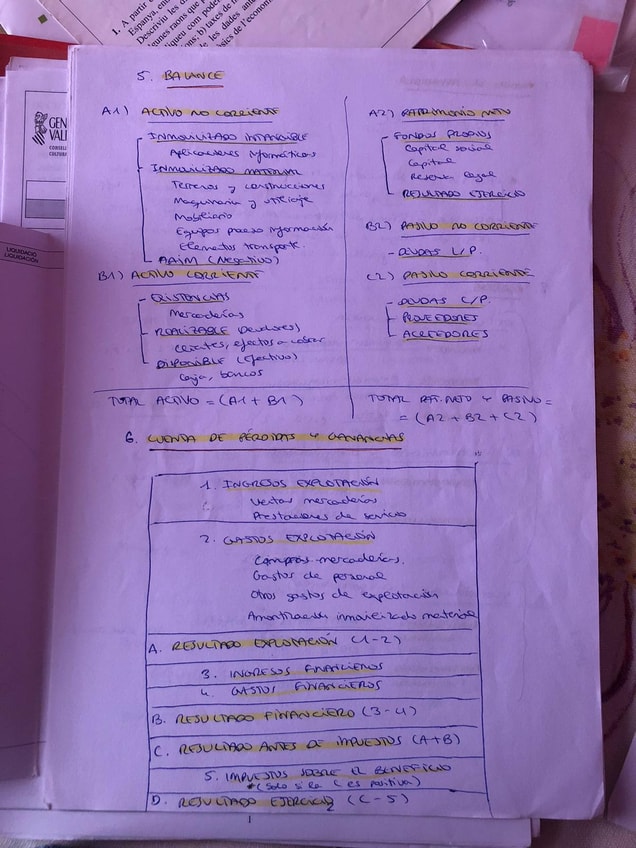 1. A partir
Espanya, en
Descriviu les d
unes raons que p
iqueu com poder
ons: b) taxes de
de les dades, anti
sics de l'econom
GEN
VAL
CONSELL
CULTURA
LIQUIDACIÓ
LIQUIDACIÓN
5. BALANCE
A1) ACTIVO NO CORRIENTE
INMOVILIZADO INTANGIBLE
Aplicaciones informáticas
INMOVILIZADO MATERIAL
Terrenos y construcciones
Maquinaria y utillaje
Mobiliario
Equipos proceso información
Elementos transporte.
AAIM (Negativo)
B1) ACTIVO CORRIENTE
- EXISTENCIAS
Mercaderías
- REALIZABLE (Deudores)
Clientes, efectos a cobrar
- DISPONIBLE (efectivo)
Caja, bancos
TOTAL ACTIVO = (A1 + B1)
A2) PATRIMONIO NETO
FONDOS PROPIOS
Capital social
Capital
Reserva legal
RESULTADO EJERCICIO
B2) PASIVO NO CORRIENTE
- DEUDAS L/P.
C2) PASIVO CORRIENTE
- DEUDAS C/P.
- PROVEEDORES
- ACREEDORES
TOTAL PAT. NETO Y PASIVO =
= (A2 + B2 + C2)
6. CUENTA DE PÉRDIDAS Y GANANCIAS
1. INGRESOS EXPLOTACIÓN
Ventas mercaderías
Prestaciones de servicio
2. GASTOS EXPLOTACIÓN
Compras mercaderías.
Gastos de personal
Otros gastos de explotación
Amortización inmovilizado material
A. RESULTADO EXPLOTACIÓN (1-2)
3. INGRESOS FINANCIEROS
4. GASTOS FINANCIEROS
B. RESULTADO FINANCIERO (3-4)
C. RESULTADO ANTES DE IMPUESTOS (A+B)
5. IMPUESTOS SOBRE EL BENEFICIO
*(Solo si la C es positiva)
D. RESULTADO EJERCICIO (C-5)